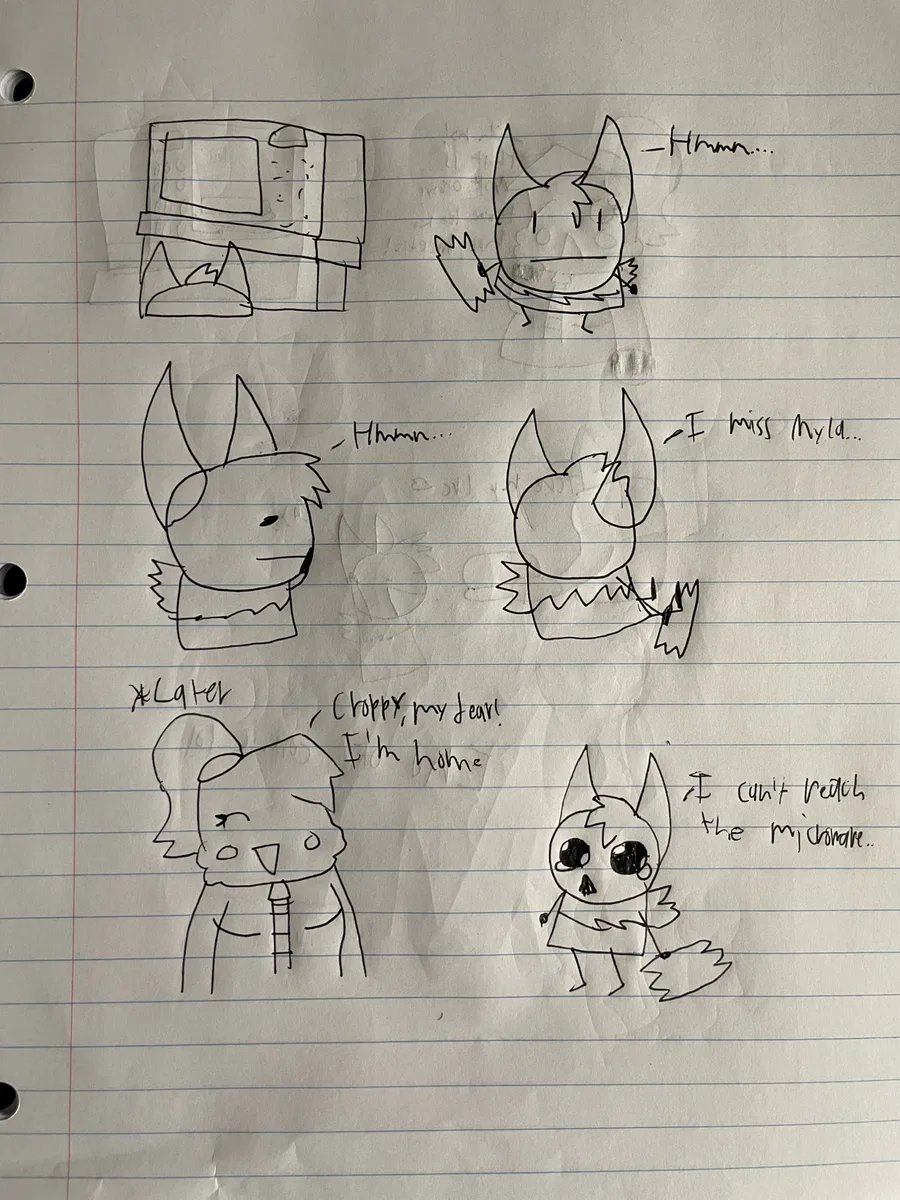 Hmmn....
Hmmn...
I miss Myla...
*Later
Croppy, my dear!
I'm home
I can't reach
the microwave..